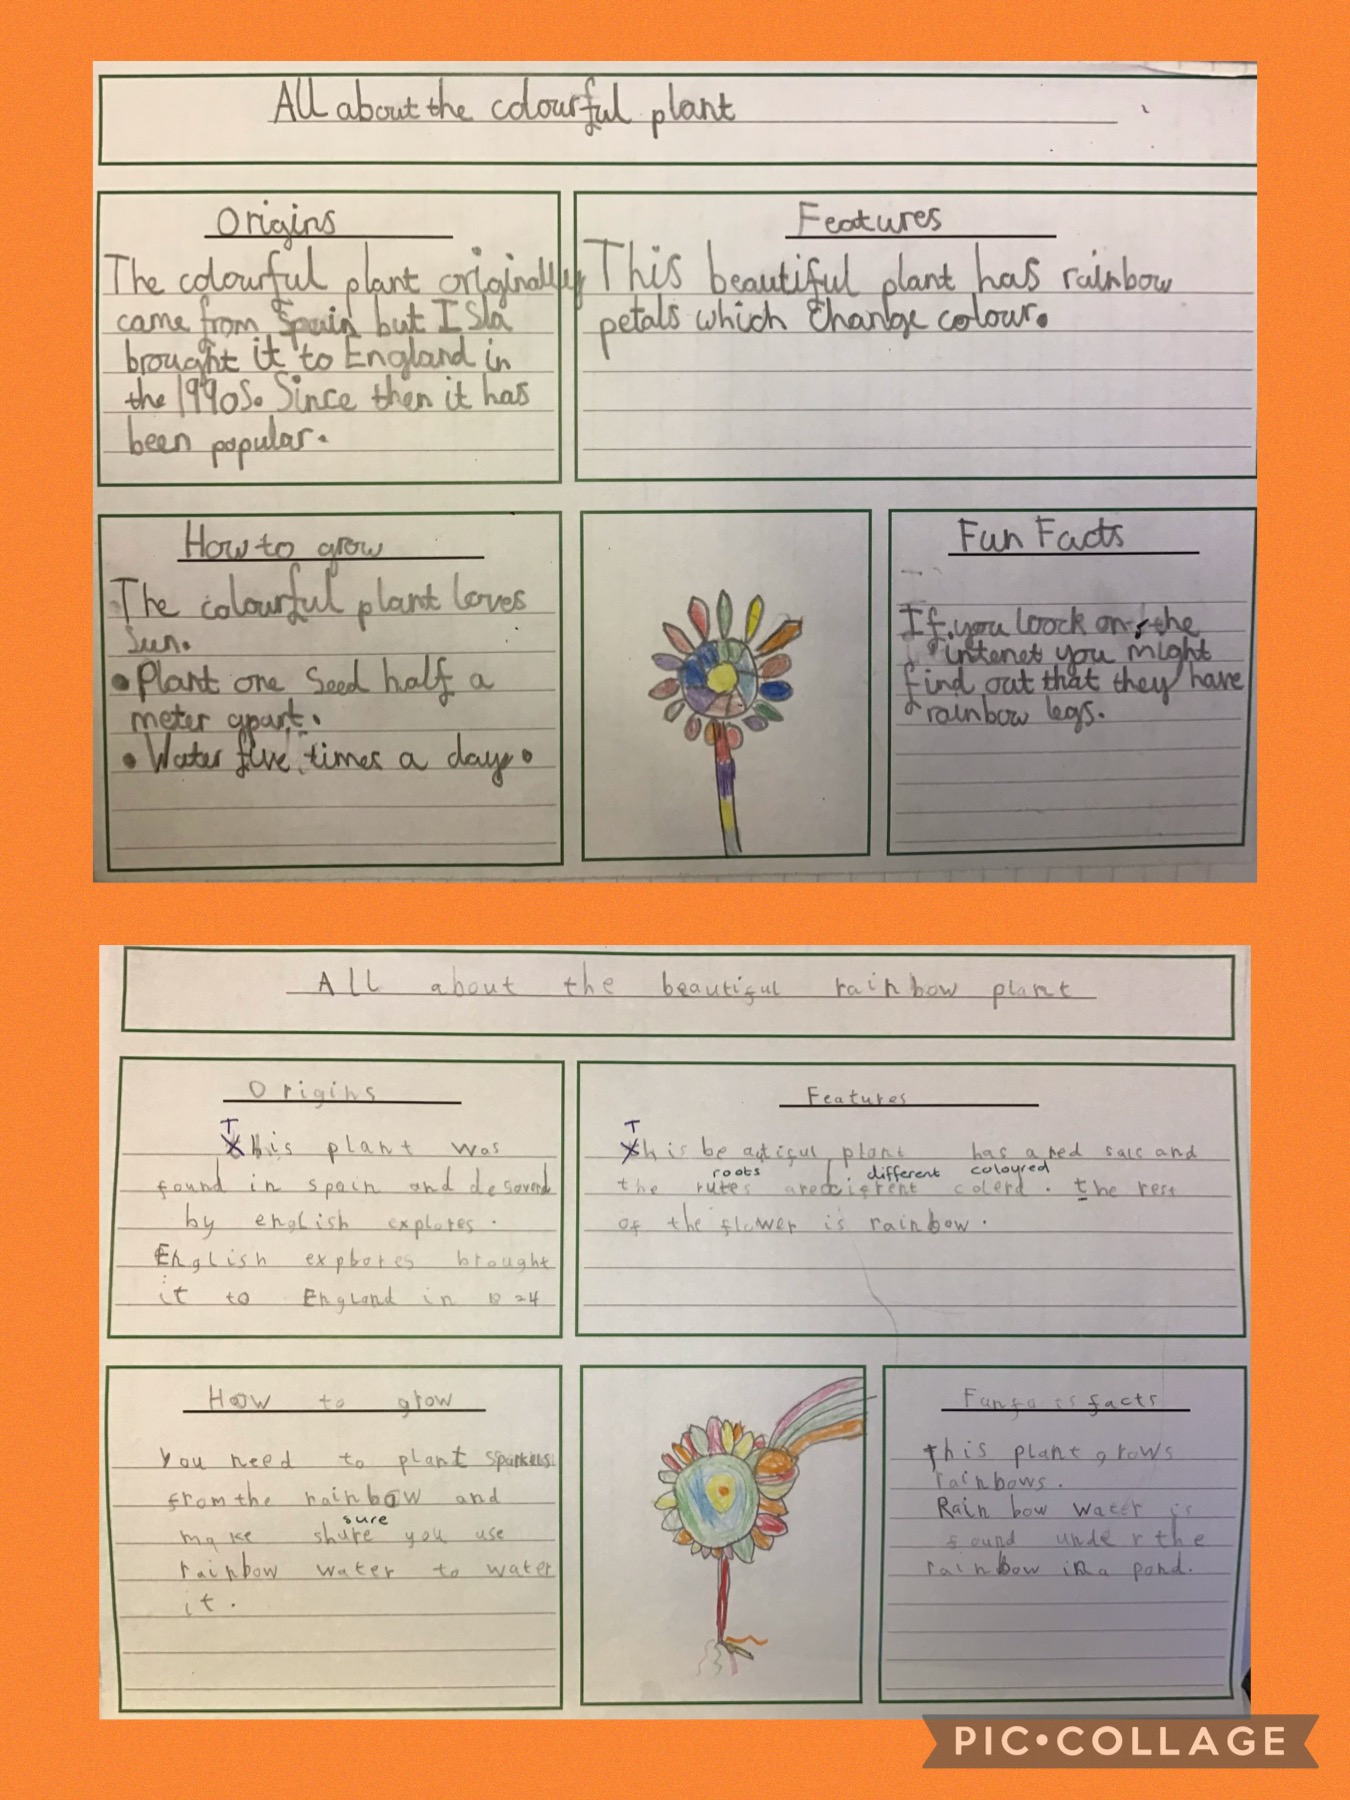 All about the colourful plant
Origins
The colourful plant originally
came from Spain but Isla
brought it to England in
the 1990s. Since then it has
been popular.
Features
This beautiful plant has rainbow
petals which change colour.
How to grow
The colourful plant loves
sun.
• Plant one seed half a
meter apart.
• Water five times a day.
Fun Facts
If you loock on the
intenet you might
find out that they have
rainbow legs.
All about the beautiful rainbow plant
Origins
This plant was
found in spain and desoverd
by english explores.
English explores brought
it to England in
Features
This beautiful plant has a red and
roots different coloured
the rutes are colerd. the rest
of the flower is rainbow.
How to grow
You need to plant
from the rainbow and
sure
make shure you use
rainbow water to water
it.
facts
this plant grows
rainbows.
Rain bow water is
found under the
rainbow in a pond.
PIC•COLLAGE